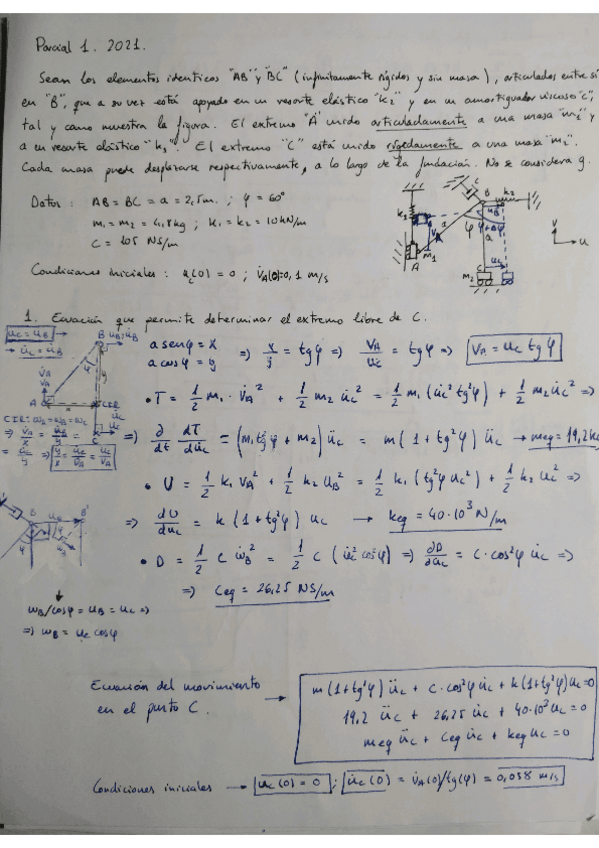 Parcial 1. 2021.
Sean los elementos identicos "AB" y "BC" (infinitamente rígidos y sin masa), articulados entre sí
en "B", que a su vez está apoyado en un resorte elástico "k₂" y en un amortiguador viscoso "c",
tal y como muestra la figura. El extremo "A" unido articuladamente a una masa "m₁" y
a un resorte elástico "k₁". El extremo "C" está unido rígidamente a una masa "m₂".
Cada masa puede desplazarse respectivamente, a lo largo de la fundación. No se considera g.
Datos: AB = BC = a = 2,5m. ; φ = 60°
m₁ = m₂ = 4,8kg ; k₁ = k₂ = 10kN/m
C = 105 NS/m
Condiciones iniciales: u_c(0) = 0 ; V̇_A(0)=0,1 m/s
k₂
B
u_B
k₁
V_A
a
φ
φ+Δφ
a
m₁
A
u_c
m₂
C
v
u
1. Ecuación que permite determinar el extremo libre de C.
u_c = u_B →
→ u̇_c = u̇_B
B u_B, u̇_B
φ
y
V̇_A
V_A
A
x
CIR
C
a senφ = x
a cosφ = y
⇒ x/y = tgφ ⇒ V_A/u_c = tgφ ⇒ V_A = u_c tgφ
• T = 1/2 m₁ · V̇_A² + 1/2 m₂ u̇_c² = 1/2 m₁ (u̇_c² tg²φ) + 1/2 m₂ u̇_c² ⇒
CIR: ω_A = ω_B = ω_C
⇒ V̇_A/x = u̇_B/y =
= u̇_c/y ⇒ y/x = u̇_c/V̇_A = u_c/V_A
⇒ ∂/∂t dT/du̇_c = (m₁ tg²φ + m₂) ü_c = m (1 + tg²φ) ü_c → meq = 19,2kg
• U = 1/2 k₁ V_A² + 1/2 k₂ u_B² = 1/2 k₁ (tg²φ u_c²) + 1/2 k₂ u_c² ⇒
⇒ dU/du_c = k (1 + tg²φ) u_c → keq = 40·10³ N/m
B
u_B
B'
φ
• D = 1/2 C ẇ_B² = 1/2 C (u̇_c² cos²φ) ⇒ ∂D/∂u̇_c = C · cos²φ u̇_c ⇒
⇒ Ceq = 26,25 NS/m
w_B/cosφ = u_B = u_c ⇒
⇒ w_B = u_c cosφ
Ecuación del movimiento
en el punto C. →
m (1+tg²φ) ü_c + c·cos²φ u̇_c + k (1+tg²φ) u_c = 0
19,2 ü_c + 26,25 u̇_c + 40·10³ u_c = 0
meq ü_c + Ceq u̇_c + keq u_c = 0
Condiciones iniciales → u_c(0) = 0 ; u̇_c(0) = V̇_A(0)/tg(φ) = 0,058 m/s